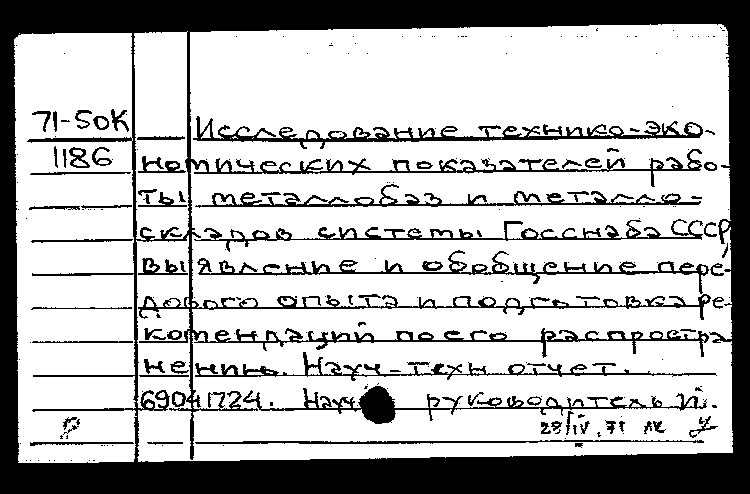 71-50К
Исследование технико-эко-
1186 номических показателей рабо-
ты металлобаз и металло-
складов системы Госснаба СССР,
выявление и обобщение пере-
дового опыта и подготовка ре-
комендаций по его распростра
нению. Науч-техн отчет.
69041724. Науч руководитель И.
р 28/IV.71 лк У